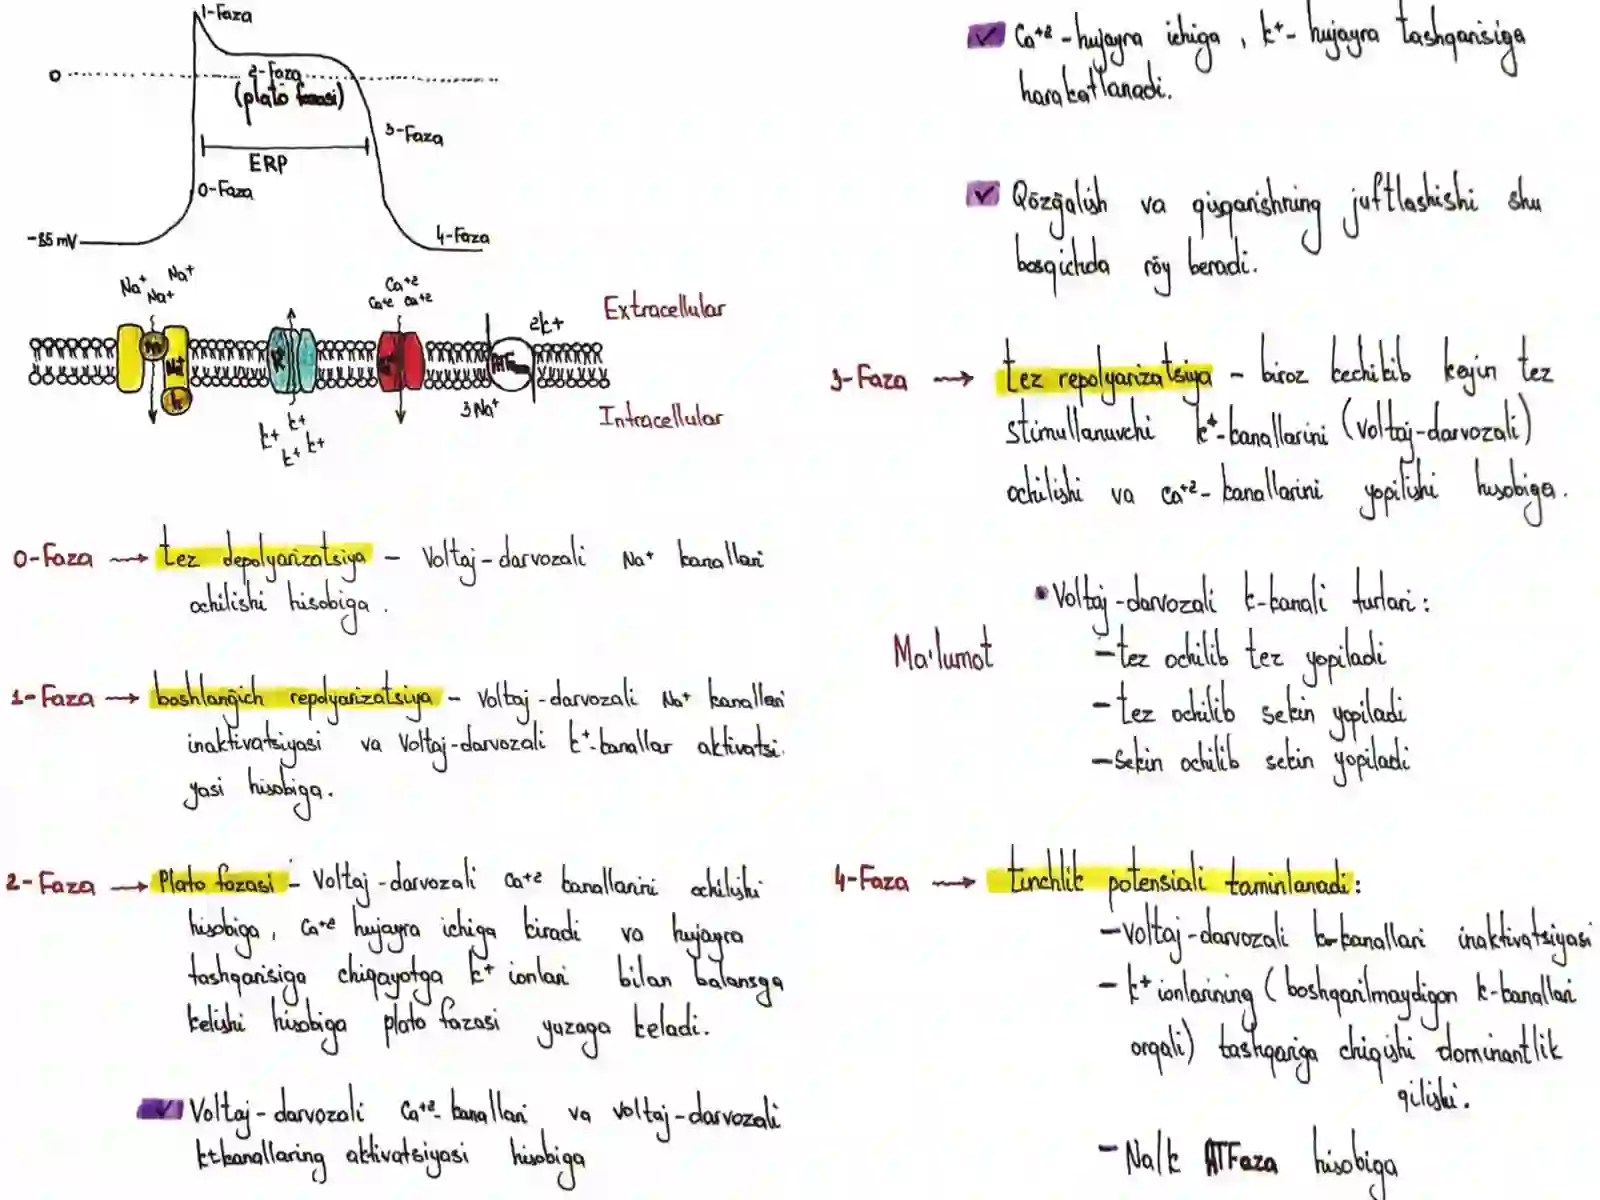 1-Faza
0
2-Faza
(plato fazasi)
3-Faza
ERP
0-Faza
-85 mV
4-Faza
Na⁺ Na⁺
Na⁺
Ca⁺²
Ca⁺² Ca⁺²
2k+
Extracellular
m
Na⁺
h
K⁺
ATFaza
3Na⁺
Intracellular
k+ k+
k+ k+
0-Faza → tez depolyarizatsiya – Voltaj-darvozali Na⁺ kanallari
ochilishi hisobiga.
1-Faza → boshlanğich repolyarizatsiya – Voltaj-darvozali Na⁺ kanallari
inaktivatsiyasi va Voltaj-darvozali k⁺-kanallar aktivatsi.
yasi hisobiga.
2-Faza → Plato fazasi – Voltaj-darvozali Ca⁺² kanallarini ochilishi
hisobiga, Ca⁺² hujayra ichiga kiradi va hujayra
tashqarisiga chiqayotga k⁺ ionlari bilan balansga
kelishi hisobiga plato fazasi yuzaga keladi.
✓ Voltaj-darvozali Ca⁺²-kanallari va voltaj-darvozali
k+kanallaring aktivatsiyasi hisobiga
✓ Ca⁺²-hujayra ichiga, k⁺-hujayra tashqarisiga
harakatlanadi.
✓ Qōzğalish va qisqarishning juftlashishi shu
bosqichda rōy beradi.
3-Faza → tez repolyarizatsiya – biroz kechikib keyin tez
stimullanuvchi k⁺-kanallarini (voltaj-darvozali)
ochilishi va Ca⁺²-kanallarini yopilishi hisobiga.
• Voltaj-darvozali k-kanali turlari:
Ma'lumot
– tez ochilib tez yopiladi
– tez ochilib sekin yopiladi
– Sekin ochilib sekin yopiladi
4-Faza → tinchlik potensiali taminlanadi:
– Voltaj-darvozali k-kanallari inaktivatsiyasi
– k⁺ ionlarining (boshqarilmaydigon k-kanallari
orqali) tashqariga chiqishi dominantlik
qilishi.
– Na/k ATFaza hisobiga